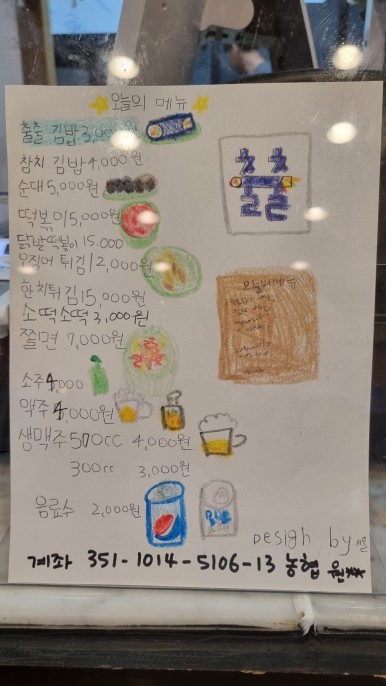 오늘의 메뉴
출출 김밥 3,000원
참치 김밥 4,000원
순대 5,000원
떡볶이 5,000원
닭발떡볶이 15.000
오징어 튀김 12,000원
한치튀김 15,000원
소떡소떡 3,000원
쫄면 7,000원
소주 4,000
맥주 4,000원
생맥주 500cc 4,000원
300cc 3,000원
음료수 2,000원
출출
오늘의 메뉴
Design by
계좌 351-1014-5106-13 농협 윤**